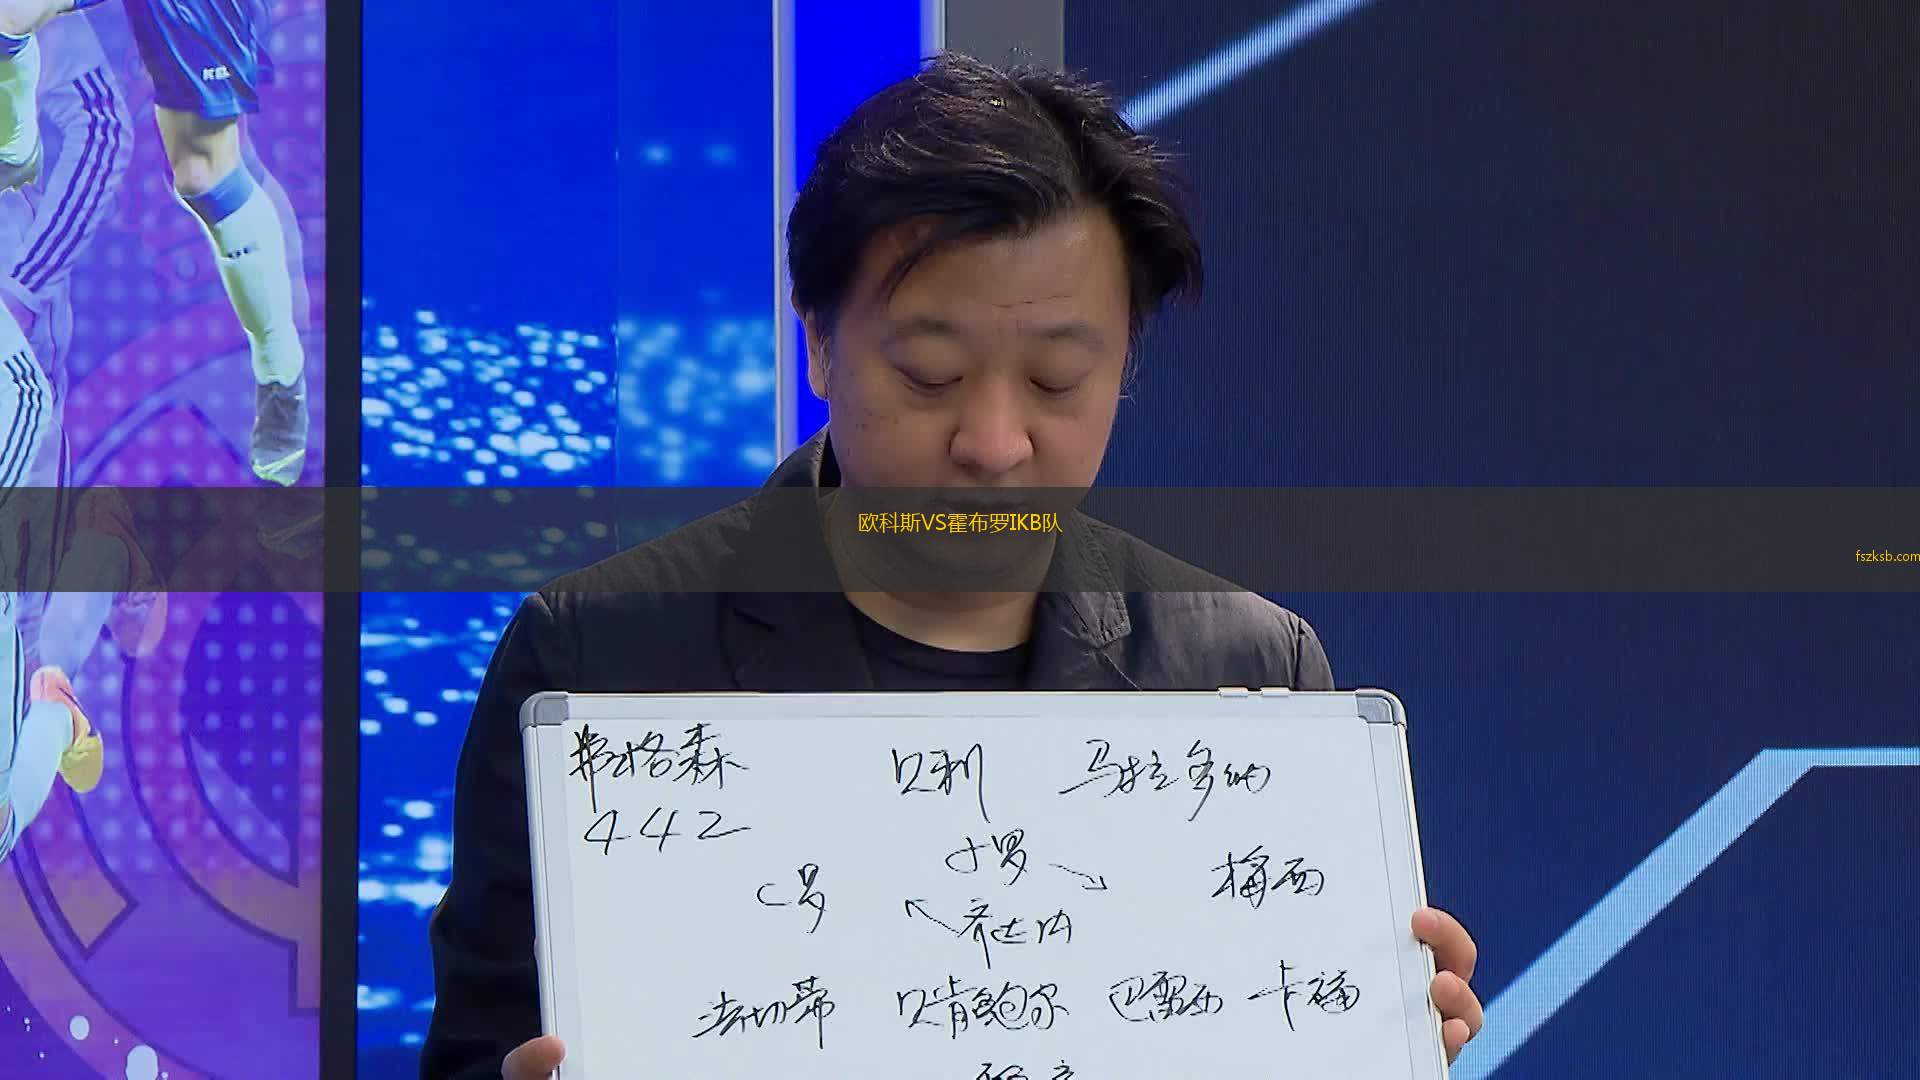 欧科斯VS霍布罗IKB队
fszksb.com
弗格森 贝利 马拉多纳
442
小罗
C罗 梅西
齐达内
法切蒂 贝肯鲍尔 巴雷西 卡福